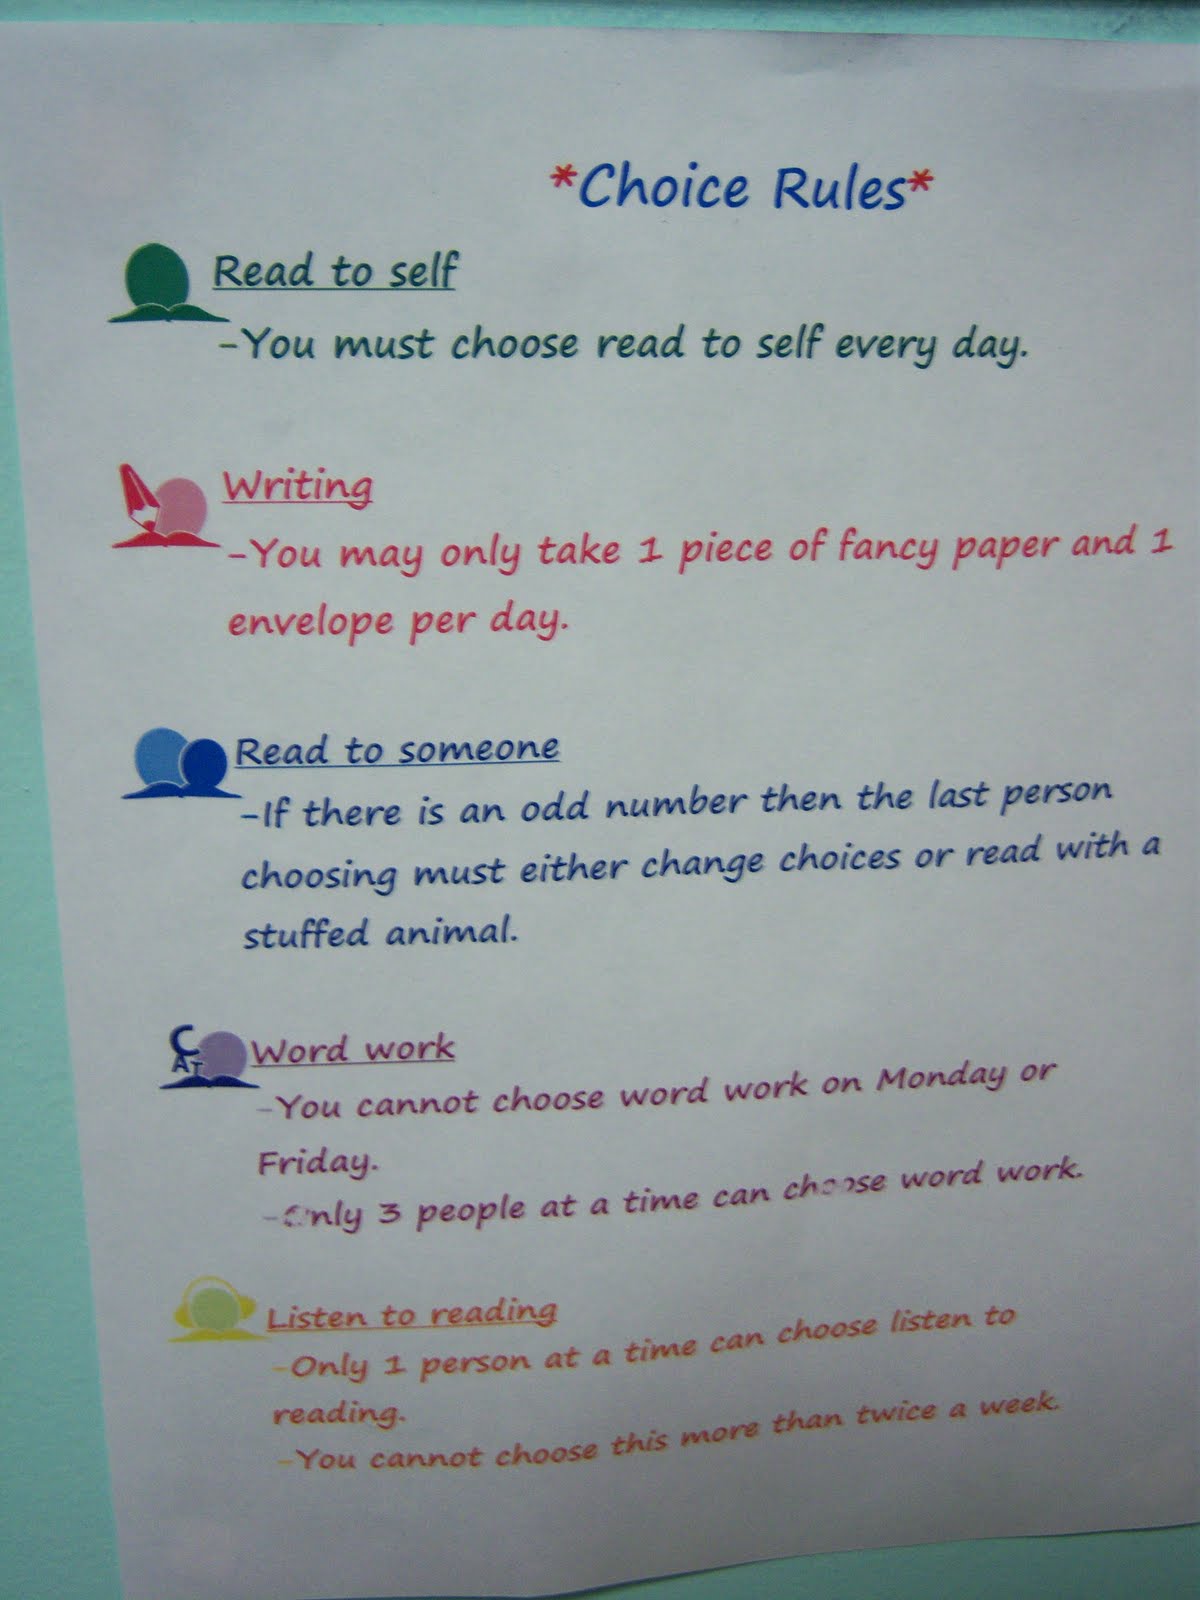 *Choice Rules*
Read to self
-You must choose read to self every day.
Writing
-You may only take 1 piece of fancy paper and 1
envelope per day.
Read to someone
-If there is an odd number then the last person
choosing must either change choices or read with a
stuffed animal.
CAT
Word work
-You cannot choose word work on Monday or
Friday.
-Only 3 people at a time can choose word work.
Listen to reading
-Only 1 person at a time can choose listen to
reading.
-You cannot choose this more than twice a week.